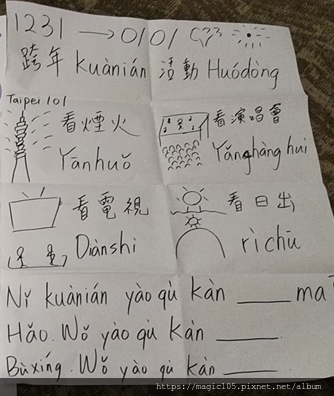 1231 → 0101
跨年 kuànián 活動 Huódòng
Taipei 101
看煙火
Yānhuǒ
看演唱會
Yǎnghàng huì
看電視
Diànshì
看日出
rìchū
Nǐ kuànián yào qù kàn ____ ma?
Hǎo. Wǒ yào qù kàn ____.
Bùxíng. Wǒ yào qù kàn ____.
https://magic105.pixnet.net/album